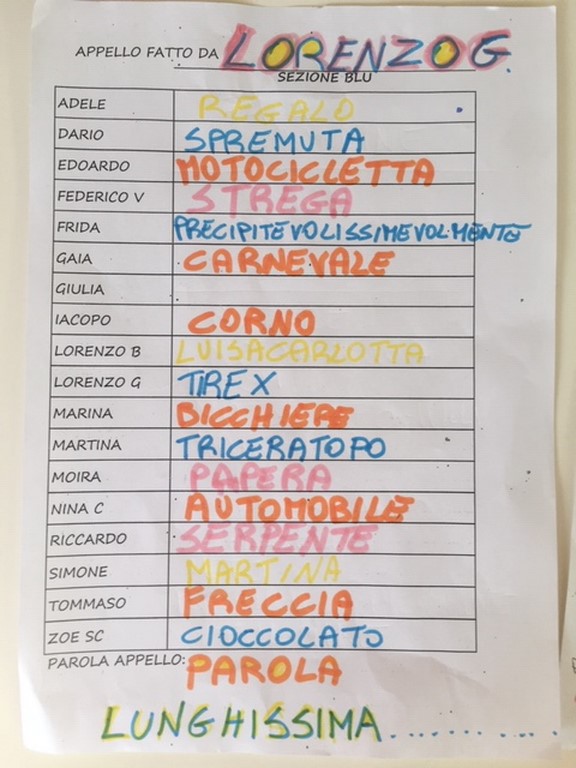 APPELLO FATTO DA LORENZO G.
SEZIONE BLU
ADELE REGALO
DARIO SPREMUTA
EDOARDO MOTOCICLETTA
FEDERICO V STREGA
FRIDA PRECIPITEVOLISSIMEVOLMENTE
GAIA CARNEVALE
GIULIA
IACOPO CORNO
LORENZO B LUISACARLOTTA
LORENZO G TIREX
MARINA BICCHIERE
MARTINA TRICERATOPO
MOIRA PAPERA
NINA C AUTOMOBILE
RICCARDO SERPENTE
SIMONE MARTINA
TOMMASO FRECCIA
ZOE SC CIOCCOLATO
PAROLA APPELLO: PAROLA
LUNGHISSIMA..........